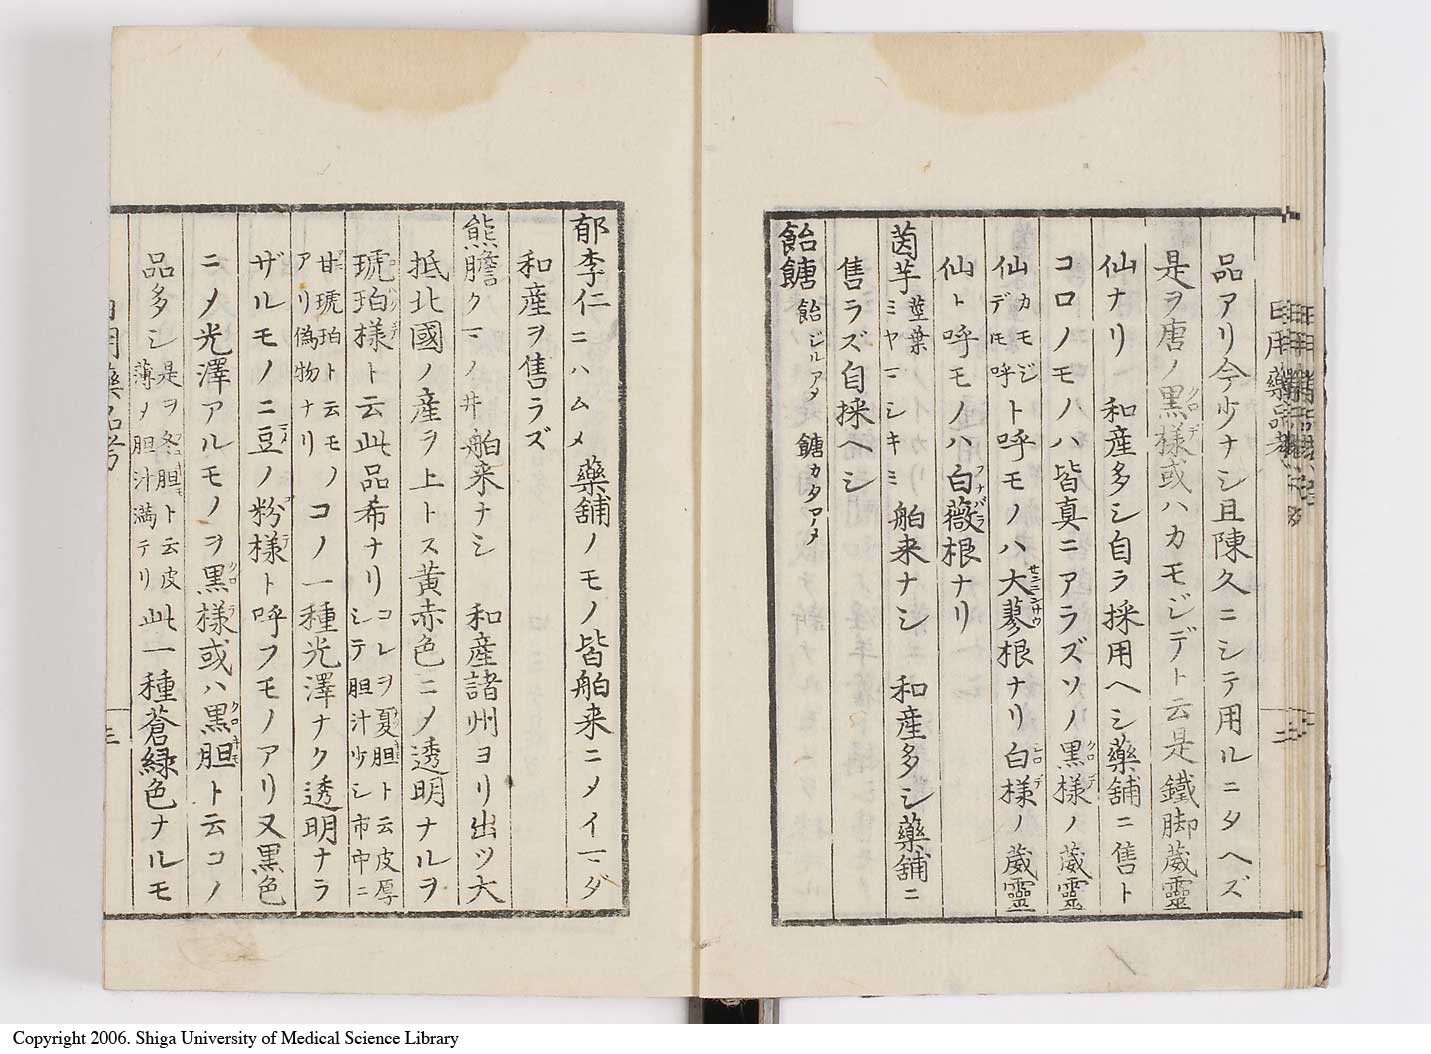 品アリ今少ナシ且陳久ニシテ用ルニタヘズ
是ヲ唐ノ黒様或ハカモジデト云是鐵脚葳靈
仙ナリ 和産多シ自ラ採用ヘシ藥舗ニ售ト
コロノモノハ皆真ニアラズソノ黒様ノ葳靈
仙カモジデモ呼ト呼モノハ大蓼根ナリ白様ノ葳靈
仙ト呼モノハ白薇根ナリ
茵芋 莖葉 ミヤマシキミ 舶来ナシ 和産多シ藥舗ニ
售ラズ自採ヘシ
飴餹 飴ジルアメ 餹カタアメ
郁李仁ニハムメ 藥舗ノモノ皆舶来ニメイマダ
和産ヲ售ラズ
熊膽クマノ井 舶来ナシ 和産諸州ヨリ出ツ大
抵北國ノ産ヲ上トス黄赤色ニメ透明ナルヲ
琥珀様ト云此品希ナリ コレヲ夏胆ト云皮厚シテ胆汁少シ市中ニ
甘琥珀ト云モノアリ偽物ナリ コノ一種光澤ナク透明ナラ
ザルモノニ豆ノ粉様ト呼フモノアリ又黒色
ニメ光澤アルモノヲ黒様或ハ黒胆ト云コノ
品多シ 是ヲ冬胆ト云皮薄メ胆汁満テリ 此一種蒼緑色ナルモ
三
Copyright 2006. Shiga University of Medical Science Library